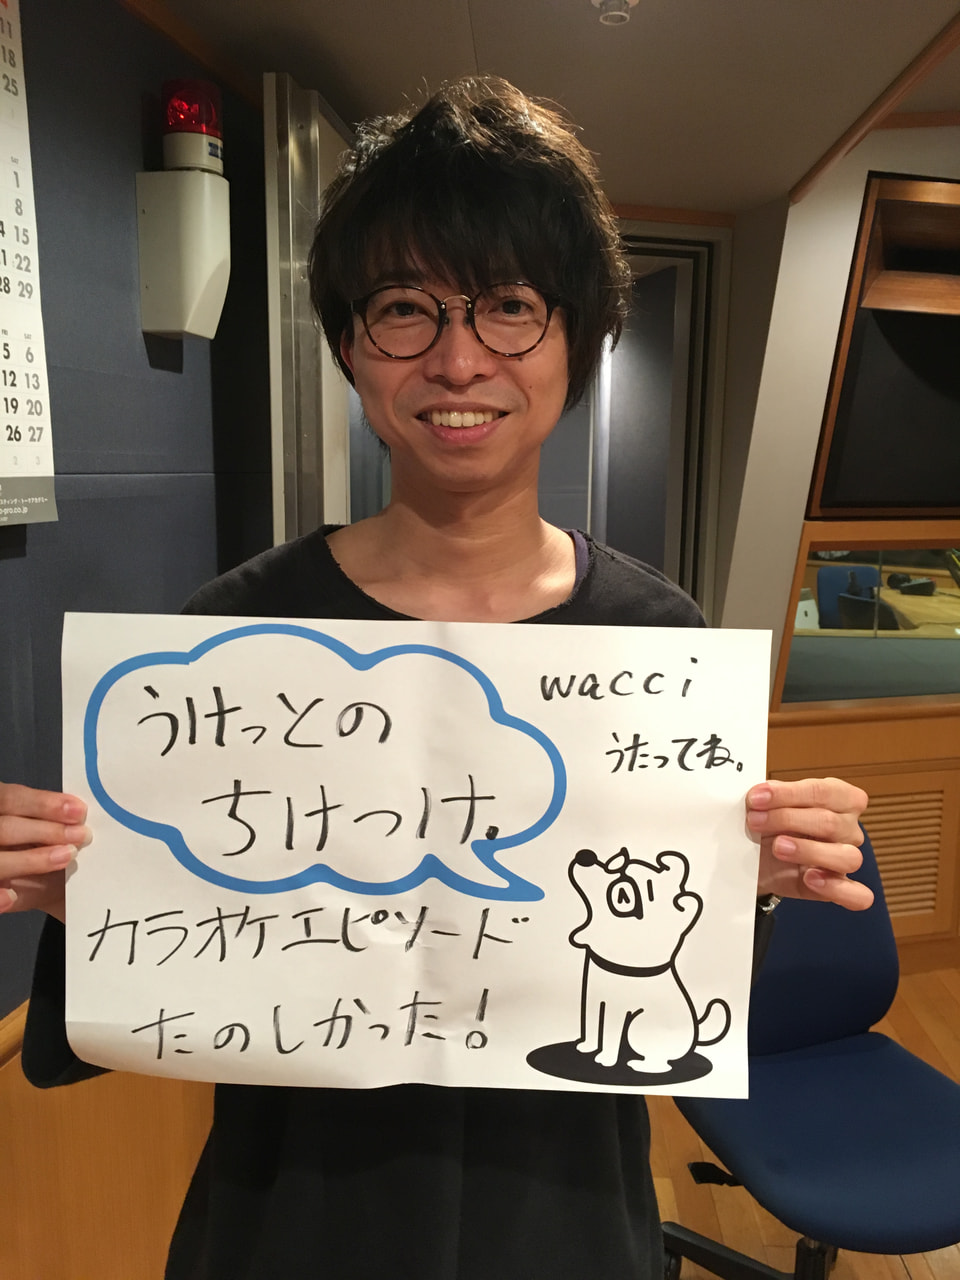 11
18
25
SAT
1
8
15
22
29
FRI SAT
5 6
12 13
19 20
26 27
2 3
うけっとの
ちけっけ。
wacci
うたってね。
カラオケエピソード
たのしかった!